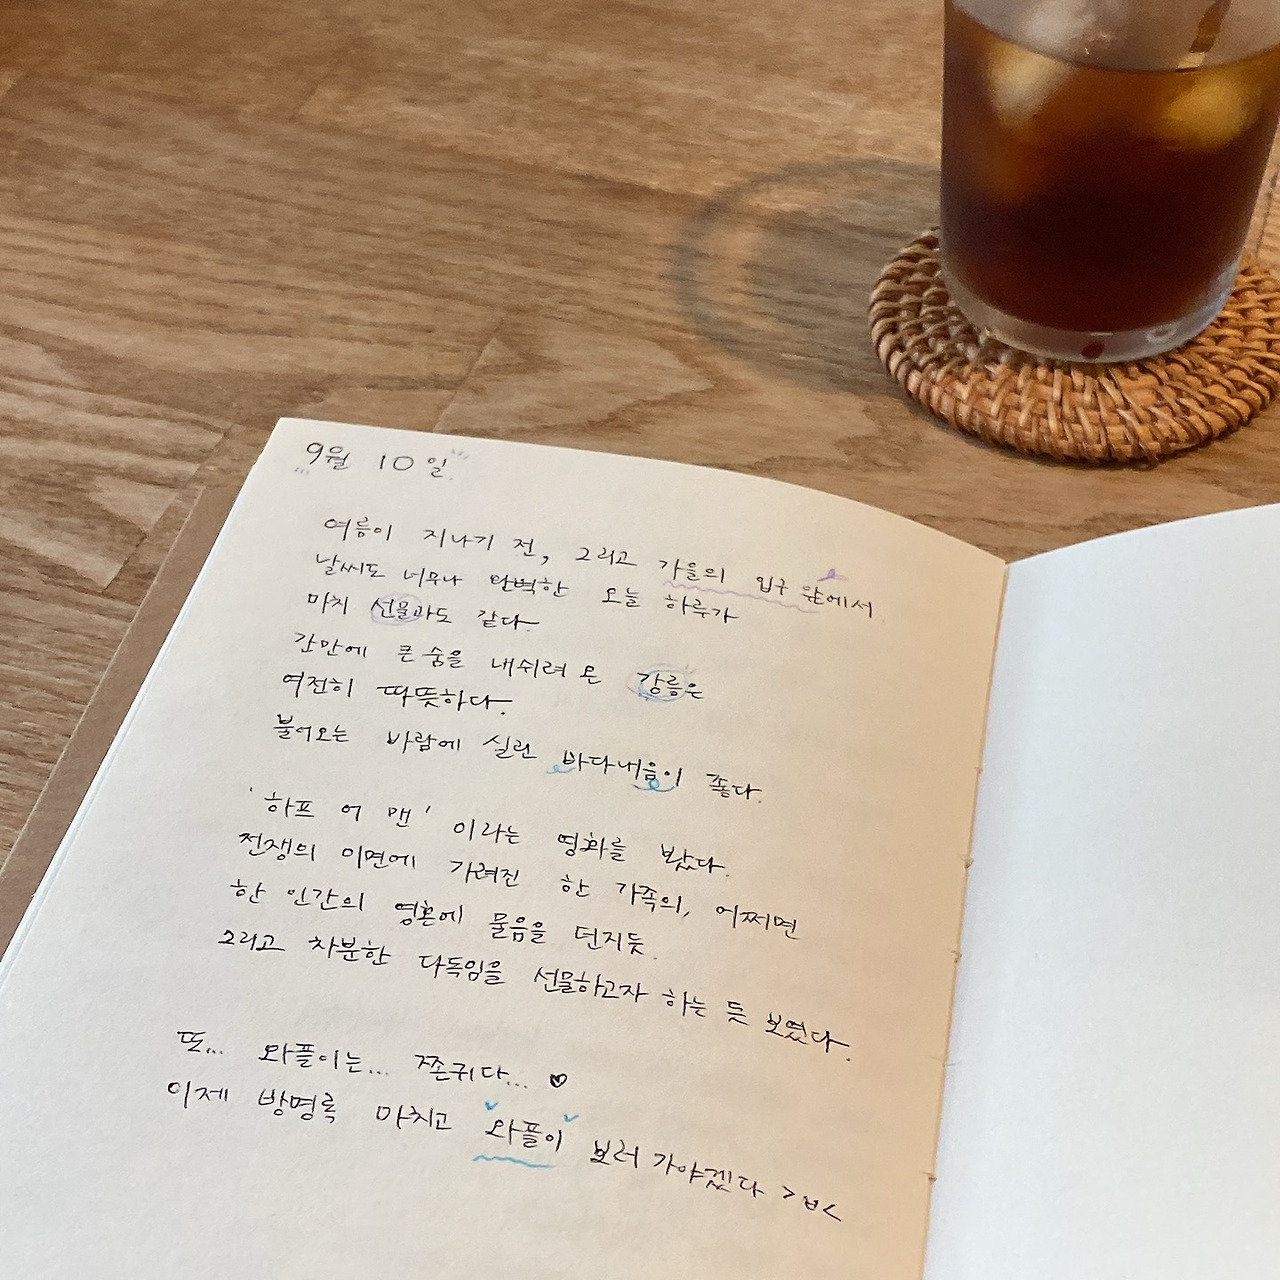 9월 10일
여름이 지나기 전, 그리고 가을의 입구 앞에서
날씨도 너무나 완벽한 오늘 하루가
마치 선물과도 같다.
간만에 큰 숨을 내쉬려 온 강릉은
여전히 따뜻하다.
불어오는 바람에 실린 바다내음이 좋다.
'하프 어 맨' 이라는 영화를 봤다.
전쟁의 이면에 가려진 한 가족의, 어쩌면
한 인간의 영혼에 물음을 던지듯.
그리고 차분한 다독임을 선물하고자 하는 듯 보였다.
또... 와플이는... 쫀귀다... ♥
이제 방명록 마치고 와플이 보러 가야겠다 >ㅂ<